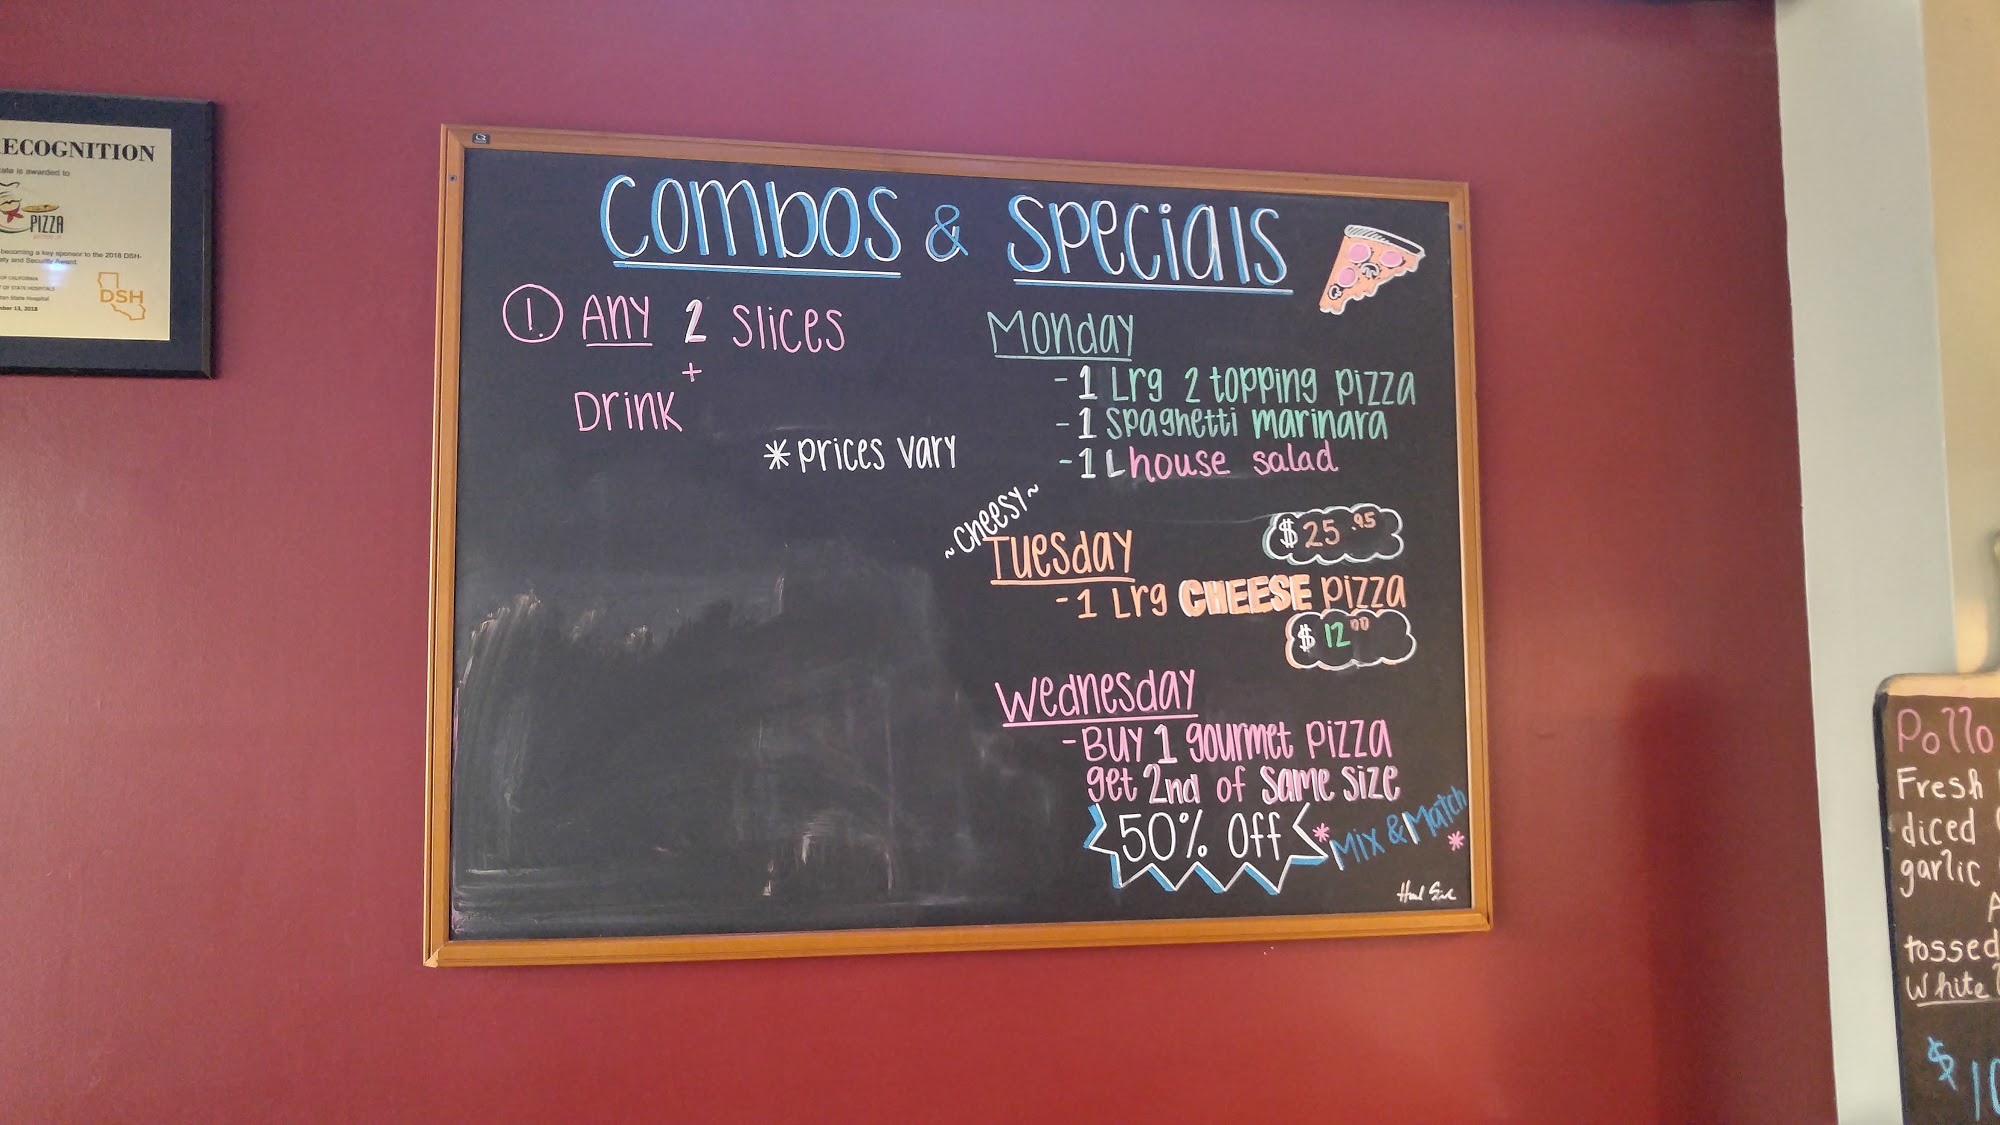 RECOGNITION
is awarded to
PIZZA
becoming a key sponsor to the 2018 DSH-
and Security Award.
OF CALIFORNIA
OF STATE HOSPITALS
State Hospital
13, 2018
DSH
Combos & Specials
1. Any 2 slices
+
Drink
*prices vary
Monday
-1 Lrg 2 topping pizza
-1 spaghetti marinara
-1 L house salad
$25.95
~cheesy~
Tuesday
-1 Lrg CHEESE pizza
$12.00
Wednesday
-Buy 1 gourmet pizza
get 2nd of same size
50% Off
*Mix & Match*
Pollo
Fresh
diced
garlic
tossed
White
$10